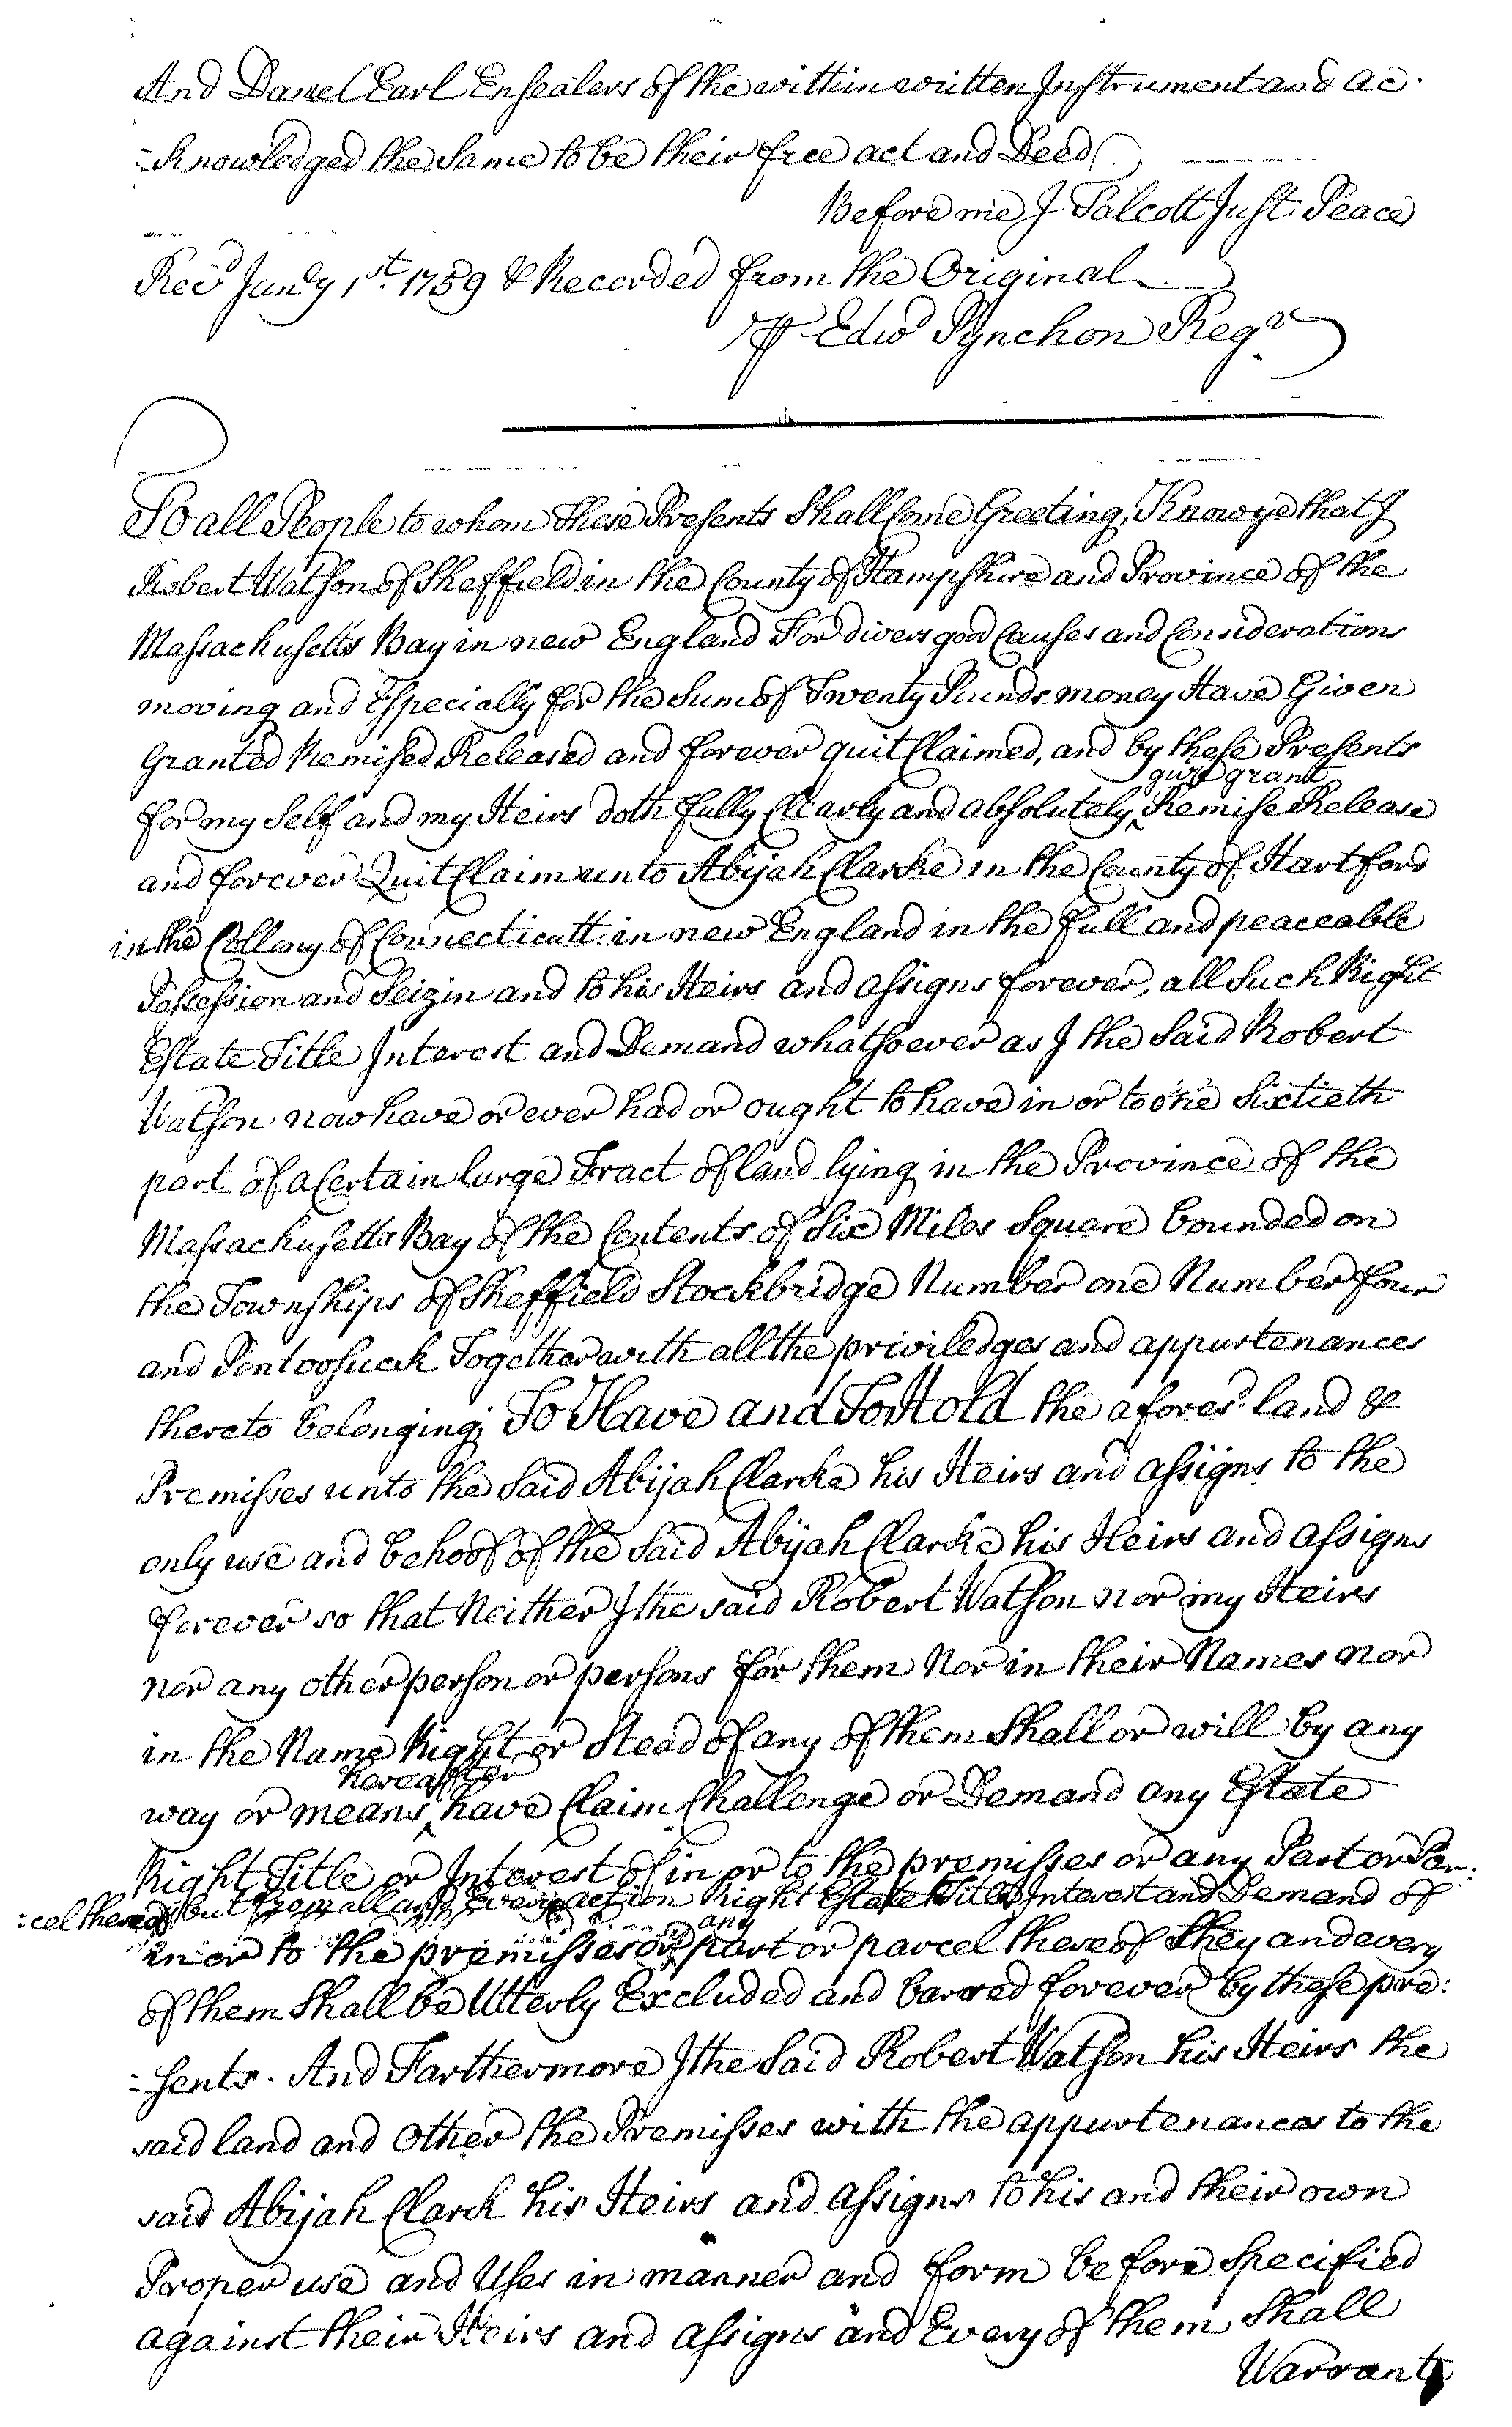 And Daniel Earl Ensealers of the within written Instrument and ac
=knowledged the Same to be their free act and Deed
Before me J Talcott Just. Peace
Recd Jany 1st. 1759 & Recorded from the Original
℔ Edwd Pynchon Regr
To all People to whom These Presents Shall Come Greeting, Know ye that I
Robert Watson of Sheffield in the County of Hampshire and Province of the
Massachusetts Bay in new England For divers good Causes and Considerations
moving and Especially for the Sum of Twenty Pounds money Have Given
Granted Remised Released and forever quit Claimed, and by these Presents
for my Self and my Heirs doth fully Clearly and absolutely ^ give grant Remise Release
and forever Quit Claim unto Abijah Clarke in the County of Hartford
in the Collony of Connecticutt in new England in the full and peaceable
Possession and Seizin and to his Heirs and assigns forever, all Such Right
Estate Title Interest and Demand whatsoever as I the Said Robert
Watson now have or ever had or ought to have in or to one Sixtieth
part of a Certain large Tract of land lying in the Province of the
Massachusetts Bay of the Contents of Six Miles Square bounded on
the Townships of Sheffield Stockbridge Number one Number four
and Pontoosuck Together with all the priviledges and appurtenances
thereto belonging; To Have and To Hold the aforesd land &
Premisses unto the Said Abijah Clarke his Heirs and assigns to the
only use and behoof of the Said Abijah Clarke his Heirs and assigns
forever so that Neither I the said Robert Watson nor my Heirs
nor any other person or persons for them Nor in their Names nor
in the Name Right or Stead of any of them Shall or will by any
way or means ^ hereafter have Claim Challenge or Demand any Estate
Right Title or Interest of in or to the premisses or any Part or Par:
=cel thereof but from all and Every action Right Estate Title Interest and Demand of
in or to the premisses or ^ any part or parcel thereof they and every
of them Shall be Utterly Excluded and barred forever by these pre:
=sents. And Farthermore I the Said Robert Watson his Heirs the
said land and Other the Premisses with the appurtenances to the
said Abijah Clark his Heirs and assigns to his and their own
Proper use and Uses in manner and form before Specified
against their Heirs and assigns and Every of them Shall
Warrant